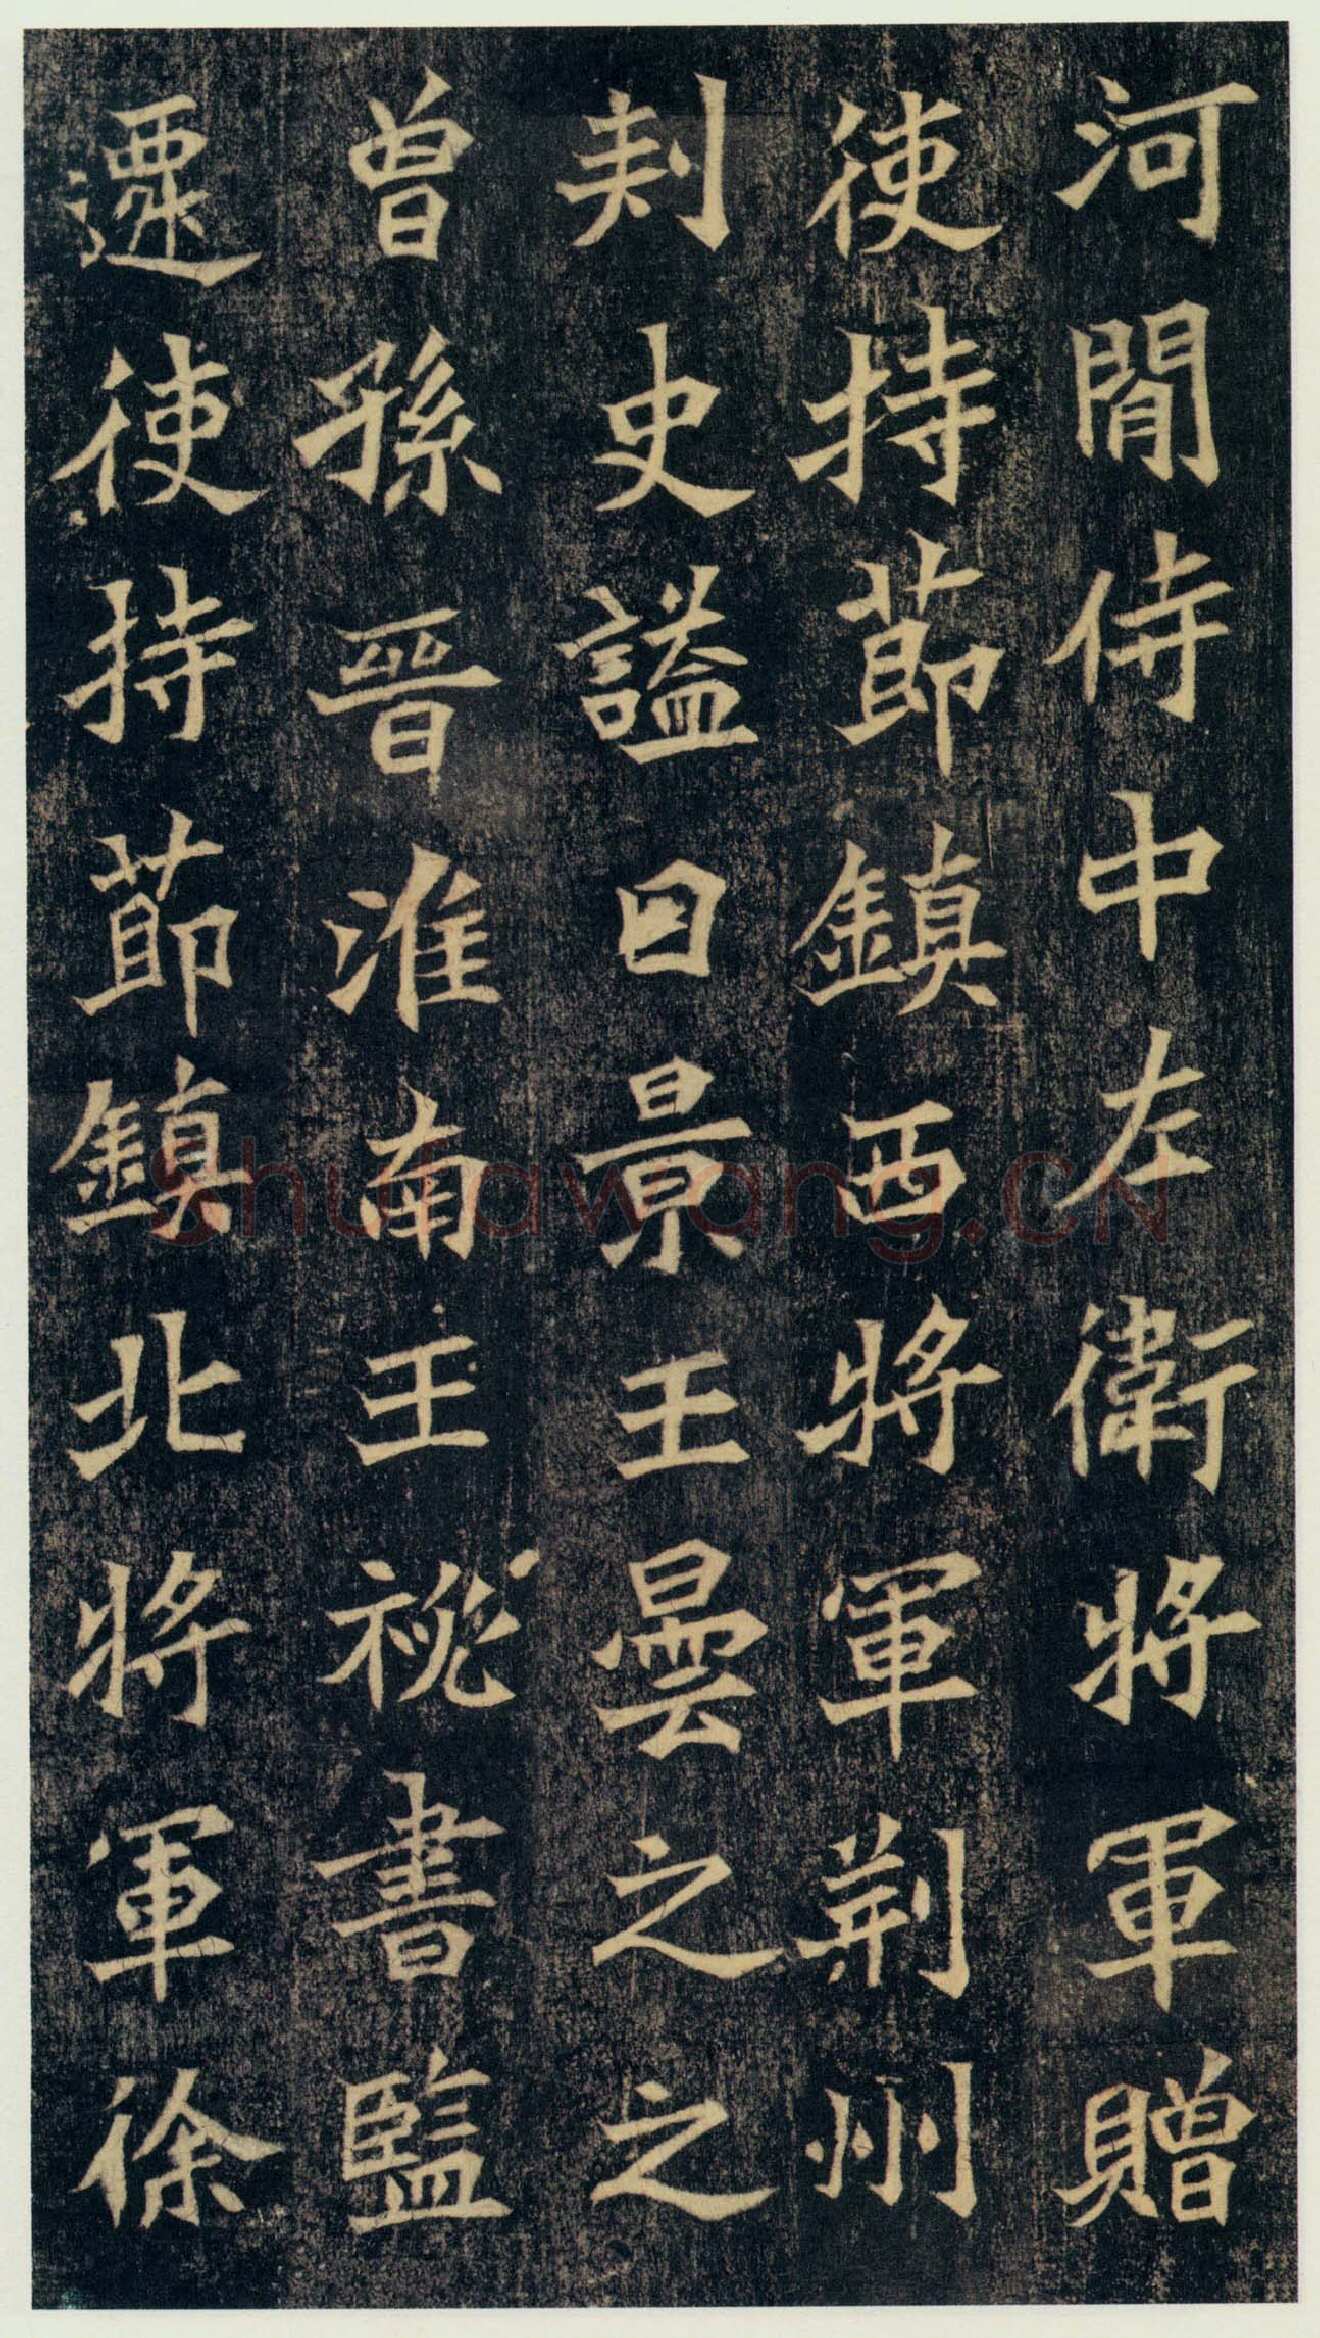 河閒侍中左衛將軍贈
使持節鎮西將軍荊州
刺史謚曰景王曇之之
曾孫晉淮南王祕書監
遷使持節鎮北將軍徐
shufawang.CN